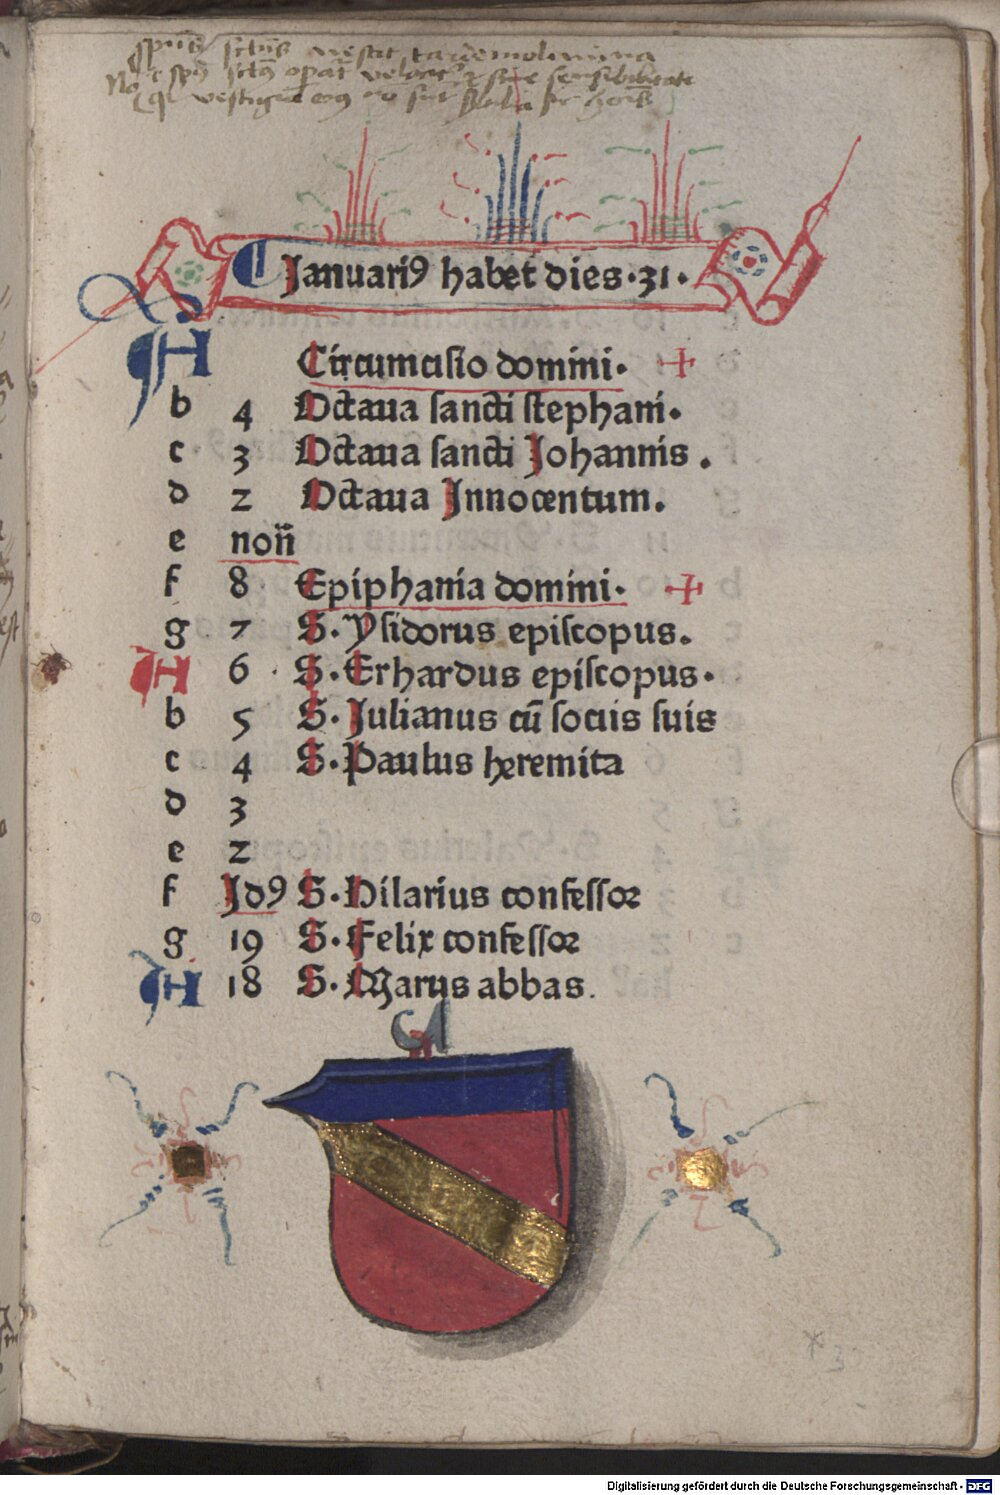 Januari9 habet dies · 31 ·
A Circumcisio domini · +
b 4 Octaua sancti stephani ·
c 3 Octaua sancti Johannis .
d 2 Octaua Innocentum .
e non̄
f 8 Epiphania domini · +
g 7 S. Ysidorus episcopus .
A 6 S. Erhardus episcopus ·
b 5 S. Julianus cū sociis suis
c 4 S. Paulus heremita
d 3
e 2
f Jd9 S. Hilarius confessor
g 19 S. Felix confessor
A 18 S. Marus abbas .
Digitalisierung gefördert durch die Deutsche Forschungsgemeinschaft - DFG